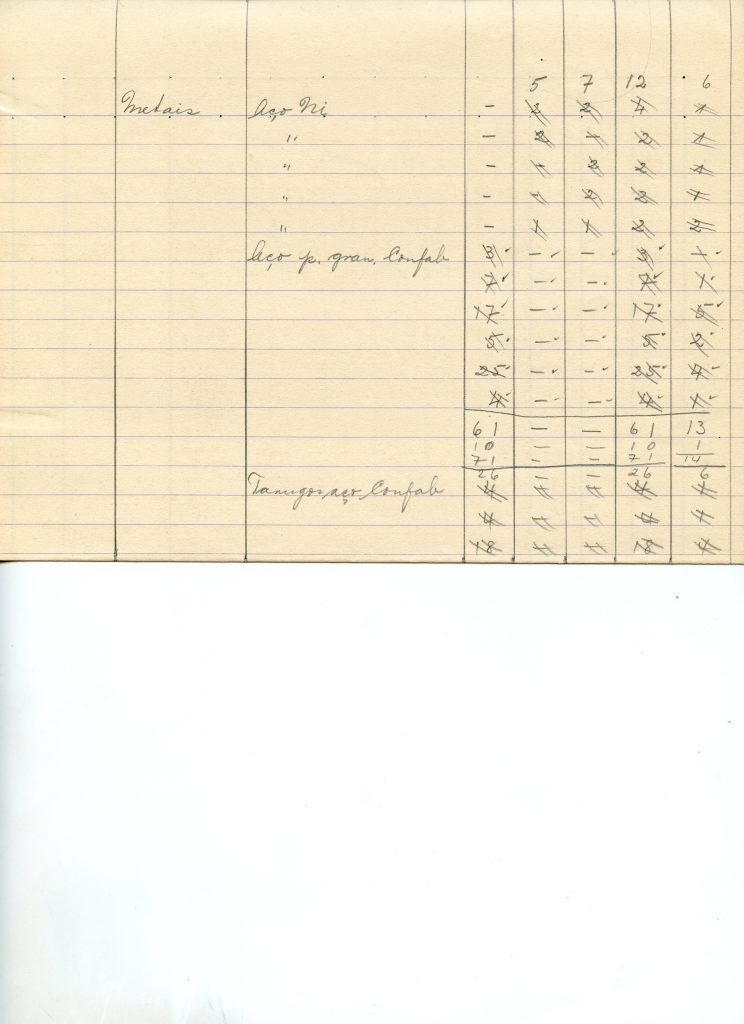 5 7 12 6
Metais Aço Ni - 2 2 4 1
" - 2 1 2 1
" - 1 2 2 1
" - 1 2 2 1
" - 1 1 2 2
Aço p. gran. Confab 3 - - 3 1
7 - - 7 1
17 - - 17 5
5 - - 5 2
25 - - 25
- -
61 - - 61 13
10 - - 10 1
71 - - 71 14
26 - - 26 6
Tarugos aço Confab
18 18